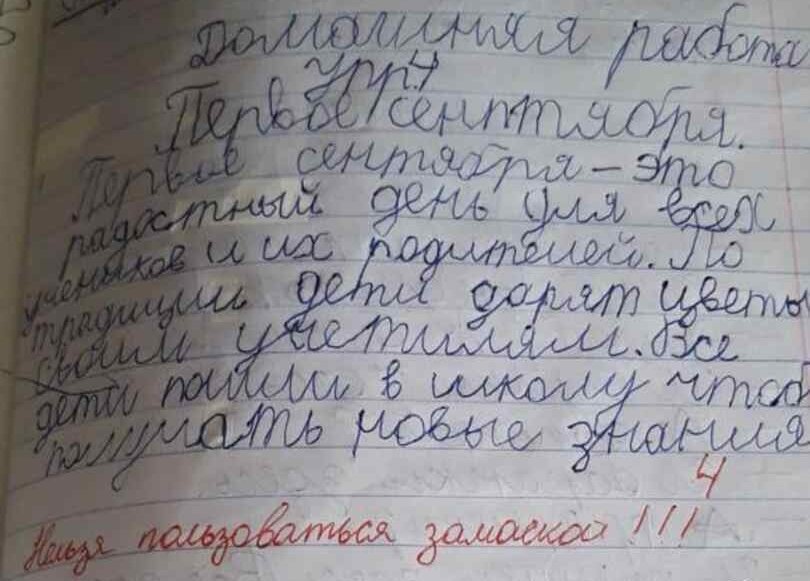 Домашняя работа
Упр.4
Первое сенптября.
Первое сентября - это
радостный день для всех
учеников и их родителей. По
традиции дети дарят цветы
своим учетилям. Все
дети пошли в школу чтоб
получать новые знания
4
Нельзя пользоваться замаской !!!